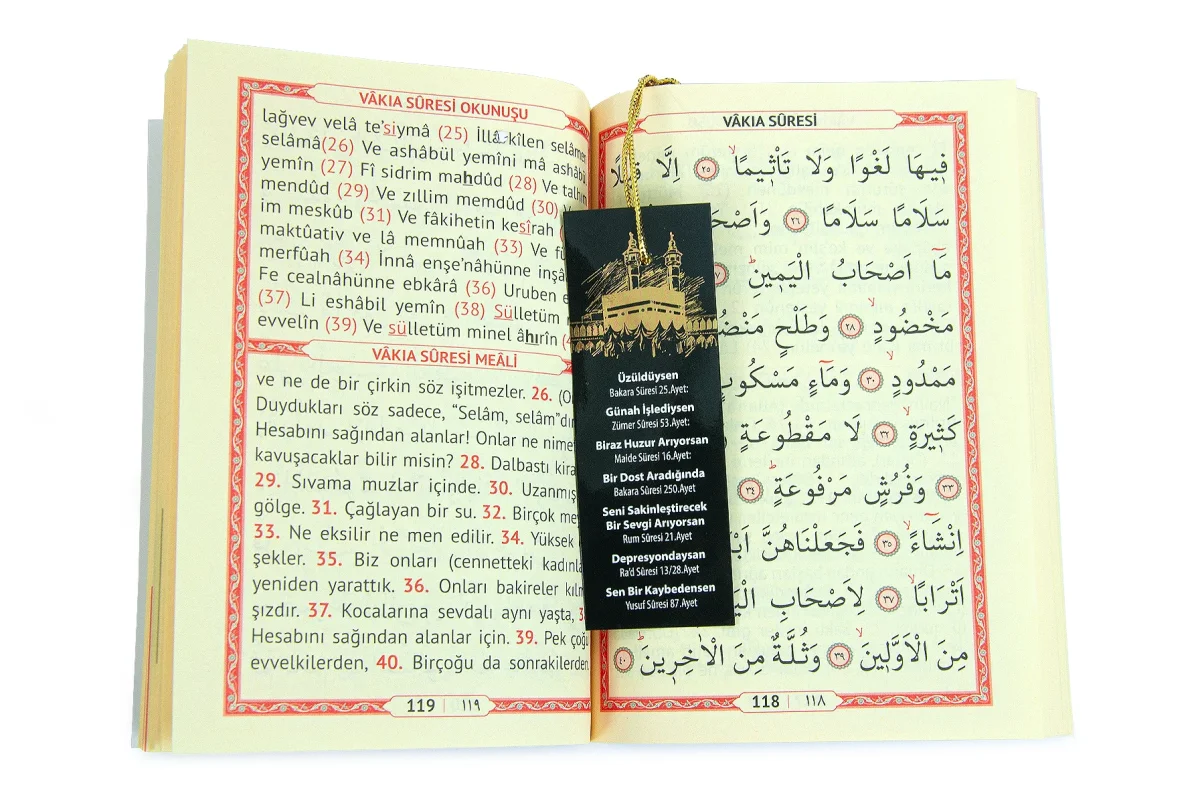 VÂKIA SÛRESİ OKUNUŞU
lağvev velâ te'siymâ (25) İllâ kîlen selâmen
selâmâ(26) Ve ashâbül yemîni mâ ashâbü
yemîn (27) Fî sidrim mahdûd (28) Ve talhım
mendûd (29) Ve zıllim memdûd (30)
im meskûb (31) Ve fâkihetin kesîrah
maktûativ ve lâ memnûah (33) Ve
merfûah (34) İnnâ enşe'nâhünne inşâ
Fe cealnâhünne ebkârâ (36) Uruben
(37) Li eshâbil yemîn (38) Sülletüm
evvelîn (39) Ve sülletüm minel âhırîn
VÂKIA SÛRESİ MEÂLİ
ve ne de bir çirkin söz işitmezler. 26.
Duydukları söz sadece, “Selâm, selâm”dır
Hesabını sağından alanlar! Onlar ne
kavuşacaklar bilir misin? 28. Dalbastı
29. Sıvama muzlar içinde. 30.
gölge. 31. Çağlayan bir su. 32. Birçok
33. Ne eksilir ne men edilir. 34. Yüksek
şekler. 35. Biz onları (cennetteki
yeniden yarattık. 36. Onları bakireler
şızdır. 37. Kocalarına sevdalı aynı yaşta,
Hesabını sağından alanlar için. 39. Pek çoğu
evvelkilerden, 40. Birçoğu da sonrakilerden
119 | ١١٩
Üzüldüysen
Bakara Sûresi 25.Ayet:
Günah İşlediysen
Zümer Sûresi 53.Ayet:
Biraz Huzur Arıyorsan
Maide Sûresi 16.Ayet:
Bir Dost Aradığında
Bakara Sûresi 250.Ayet
Seni Sakinleştirecek
Bir Sevgi Arıyorsan
Rum Sûresi 21.Ayet
Depresyondaysan
Ra'd Sûresi 13/28.Ayet
Sen Bir Kaybedensen
Yusuf Sûresi 87.Ayet
VÂKIA SÛRESİ
فٖيهَا لَغْوًا وَلَا تَأْثٖيمًاۙ ﴿٢٥﴾ اِلَّا
سَلَامًا سَلَامًا ﴿٢٦﴾
مَٓا اَصْحَابُ الْيَمٖينِۜ
مَخْضُودٍۙ ﴿٢٨﴾ وَطَلْحٍ
مَمْدُودٍۙ ﴿٣٠﴾ وَمَٓاءٍ مَسْكُوبٍ
كَثٖيرَةٍۙ ﴿٣٢﴾ لَا مَقْطُوعَةٍ
﴿٣٣﴾ وَفُرُشٍ مَرْفُوعَةٍۜ ﴿٣٤﴾
اِنْشَٓاءًۙ ﴿٣٥﴾ فَجَعَلْنَاهُنَّ
اَتْرَابًاۙ ﴿٣٧﴾ لِاَصْحَابِ
مِنَ الْاَوَّلٖينَۙ ﴿٣٩﴾ وَثُلَّةٌ مِنَ الْاٰخِرٖينَۜ ﴿٤٠﴾
118 | ١١٨